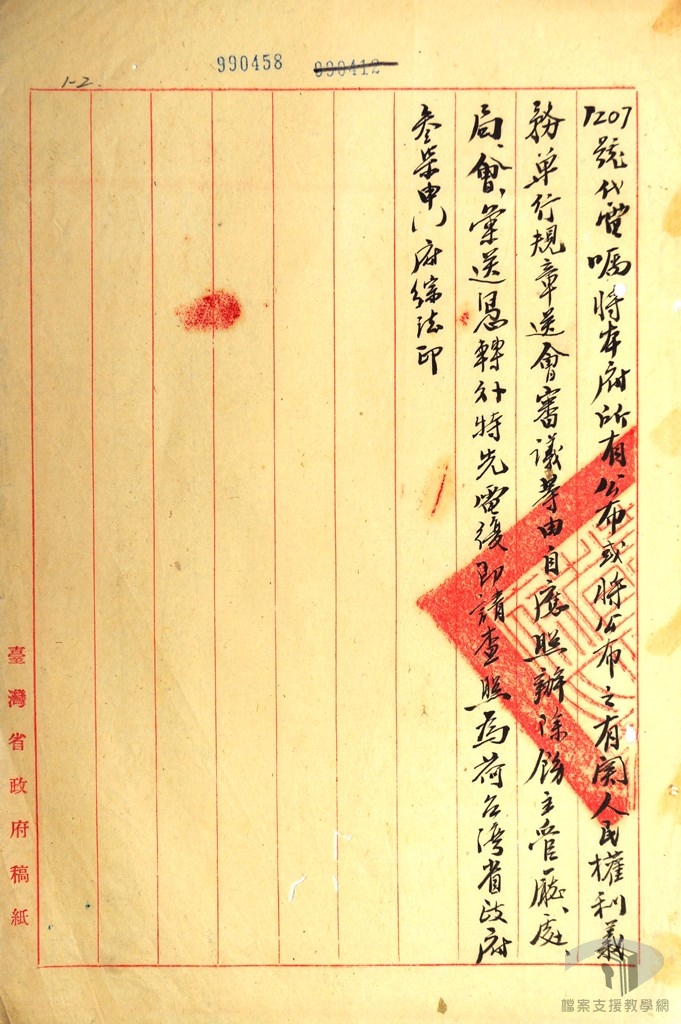 990458 990412
1-2.
1207號代電囑將本府所有公布或將公布之有関人民權利義
務单行規章送會審議等由自應照辦除飭主管廳、處、
局、會、彙送憑轉外特先電復即請查照為荷台湾省政府
叁柒申 府綜法印
臺灣省政府稿紙
檔案支援教學網